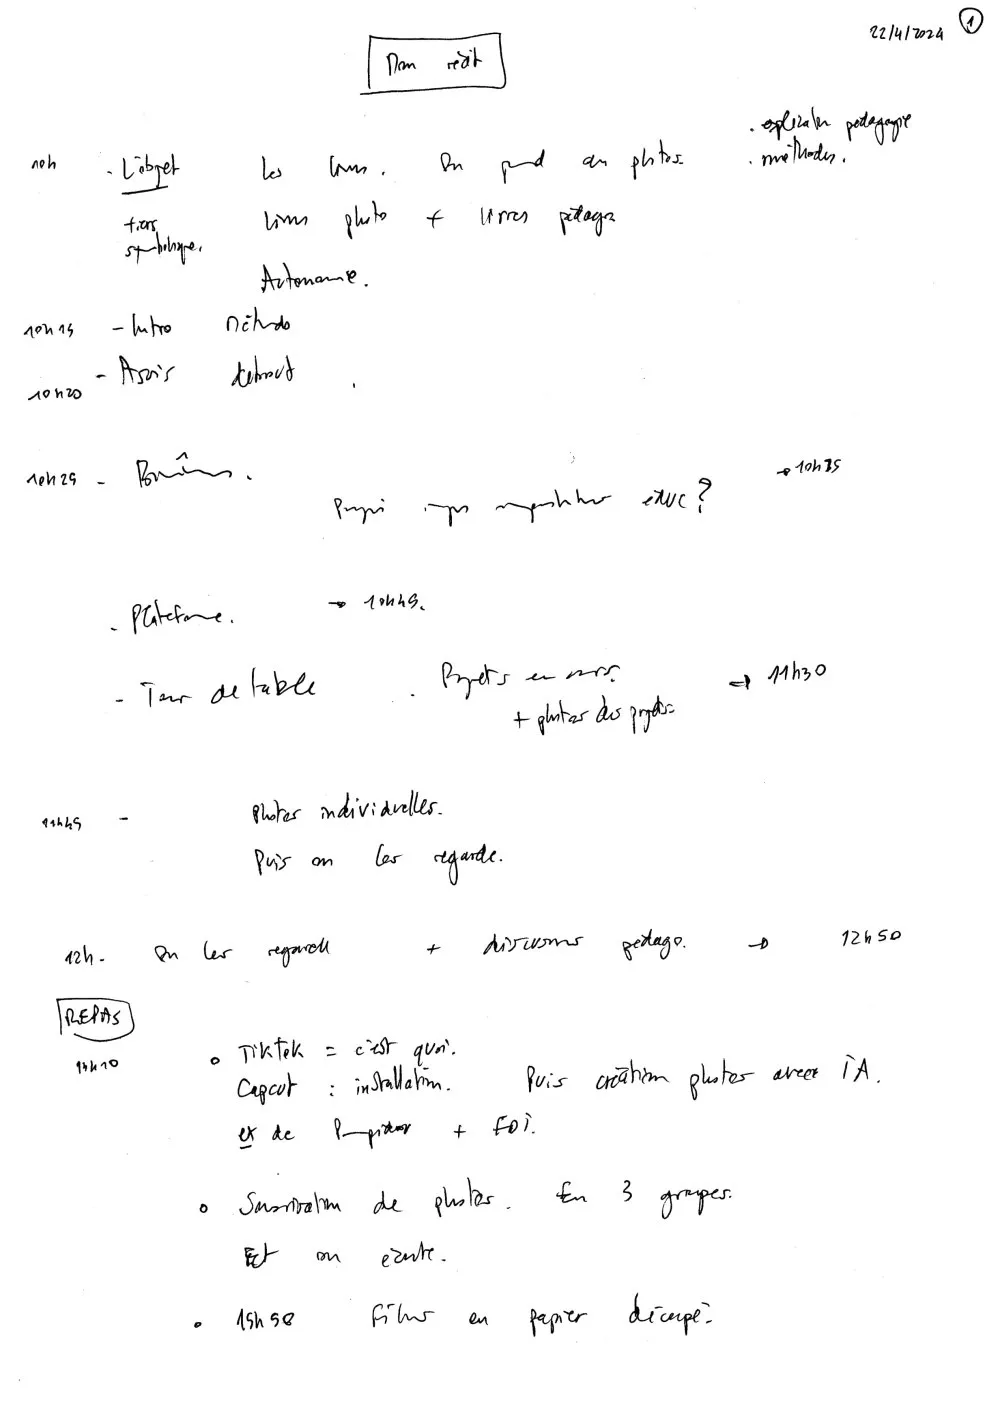 22/4/2024 1
Mon récit
10h - L'objet Les livres. On prend des photos. . explication pédagogie
. méthodes.
tiers livres photo + livres pédago
symbolique.
Autonomie.
10h15 - Intro Méthodo
10h20 - Assis debout
10h25 - → 10h35
éduc ?
- Plateforme. → 10h45.
- Tour de table . Projets en cours. → 11h30
+ photos des projets
11h45 - Photos individuelles.
Puis on les regarde.
12h - On les regarde + discussions pédago. → 12h50
REPAS
14h10 • TikTok = c'est quoi.
Capcut : installation. Puis création photos avec IA.
ex de + EDI.
• Sonorisation de photos. En 3 groupes.
Et on écoute.
• 15h50 Films en papier découpé.